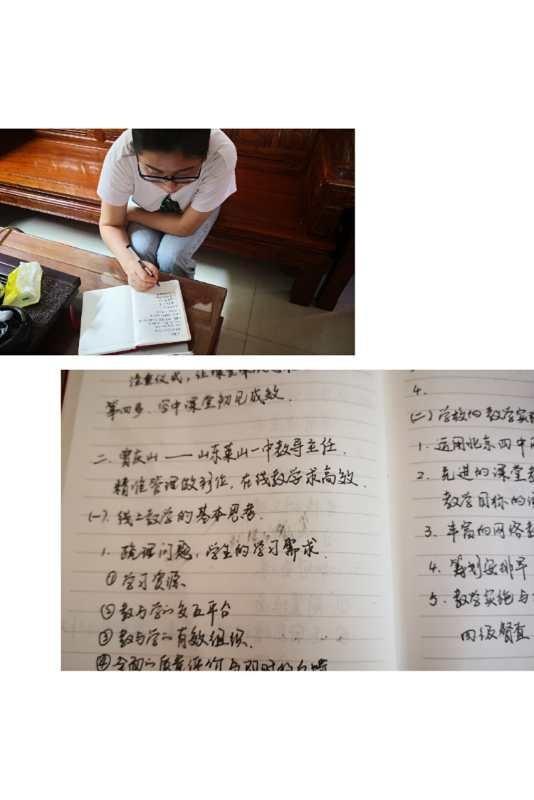 第四步. 空中课堂初见成效.
二. 曹庆山 —— 山东莱山一中教导主任.
精准管理做到位, 在线教学求高效.
(一). 线上教学的基本思考.
1. 疏理问题, 学生的学习需求.
①学习资源
②教与学的交互平台
③教与学的有效组织.
④全面的质量评价与即时的
4.
(二) 学校的教学实
1. 运用北京四中
2. 先进的课堂教
教学目标的
3. 丰富的网络教
4. 筹划安排早
5. 教学实施与
四级督查